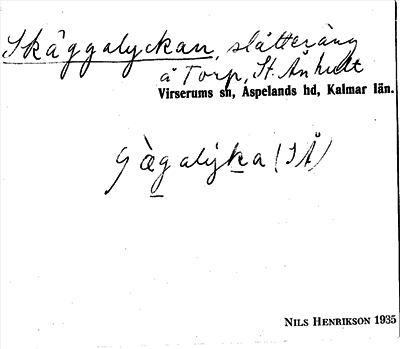 Skäggalyckan, slåtteräng
å Torp, St. Århult
Virserums sn, Aspelands hd, Kalmar län.
(SÅ)
NILS HENRIKSON 1935